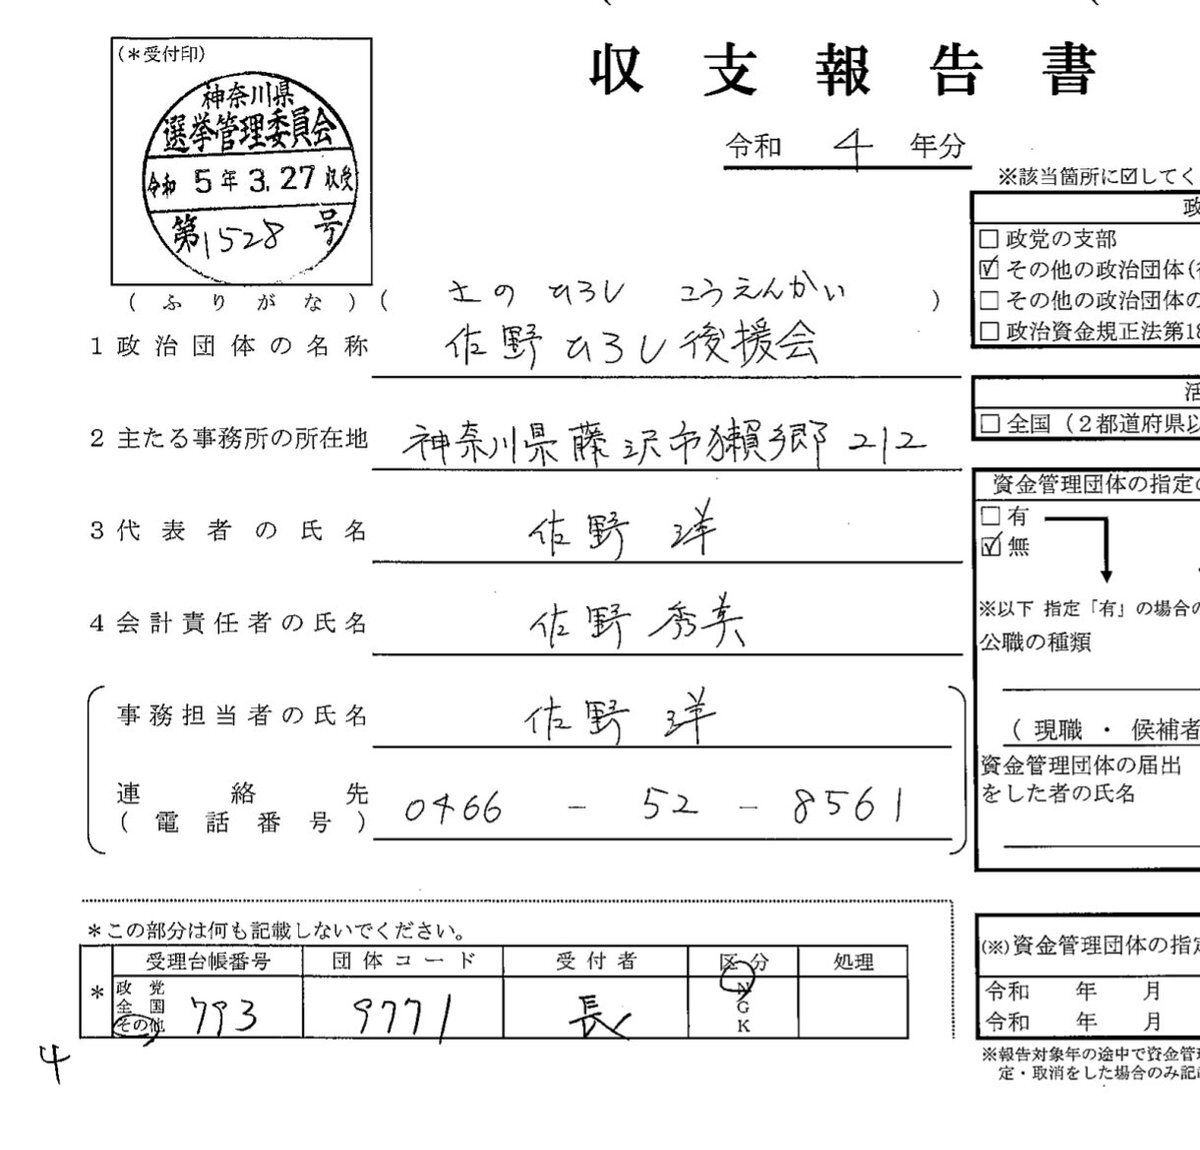 (＊受付印)
神奈川県
選挙管理委員会
令和 5年 3.27 収受
第1528号
収支報告書
令和 4 年分
※該当箇所に☑してく
政
□ 政党の支部
☑ その他の政治団体(
□ その他の政治団体の
□ 政治資金規正法第18
(ふりがな) ( さの ひろし こうえんかい )
1 政治団体の名称 佐野ひろし後援会
活
□ 全国（2都道府県以
2 主たる事務所の所在地 神奈川県藤沢市獺郷212
資金管理団体の指定の
□ 有
☑ 無
3 代表者の氏名 佐野 洋
※以下 指定「有」の場合の
公職の種類
4 会計責任者の氏名 佐野 秀美
事務担当者の氏名 佐野 洋
( 現職 ・ 候補者
資金管理団体の届出
をした者の氏名
連絡先
(電話番号) 0466 - 52 - 8561
＊この部分は何も記載しないでください。
受理台帳番号 団体コード 受付者 区分 処理
＊ 政党 全国 その他 793 9771 長 N G K
4
(※)資金管理団体の指定
令和 年 月
令和 年 月
※報告対象年の途中で資金管理
定・取消をした場合のみ記